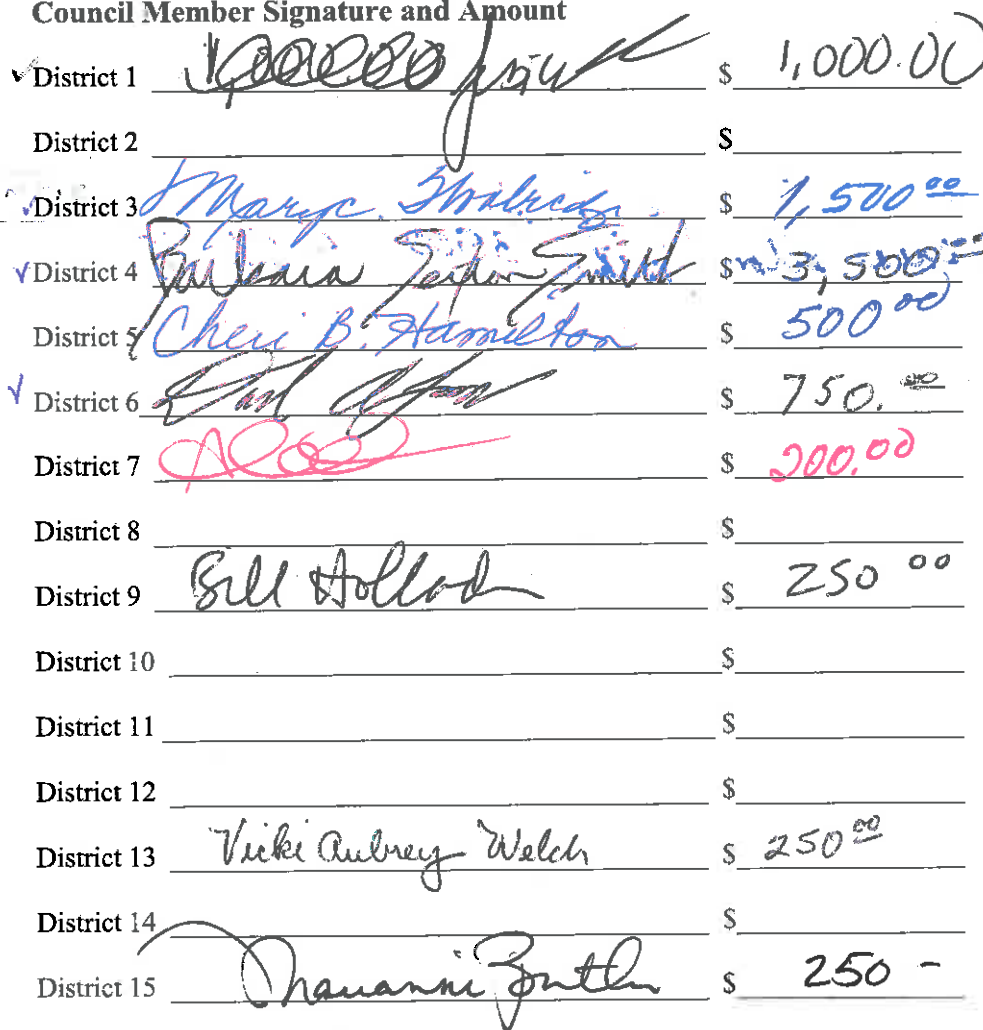 Council Member Signature and Amount
District 1 $ 1,000.00
District 2 $
District 3 Mary C. $ 1,500 00
District 4 Barbara Smith $ 3,500
District 5 Cheri B. Hamilton $ 500 00
District 6 $ 750. 00
District 7 $ 200.00
District 8 $
District 9 Bill Hollander $ 250 00
District 10 $
District 11 $
District 12 $
District 13 Vicki Aubrey Welch $ 250 00
District 14 $
District 15 Marianne Butler $ 250 -